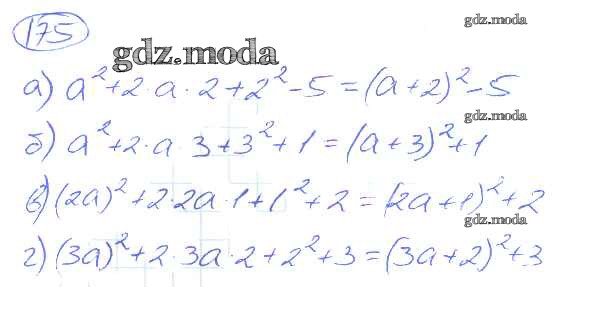 175
gdz.moda
gdz.moda
а) a² + 2 · a · 2 + 2² - 5 = (a + 2)² - 5
gdz.moda
б) a² + 2 · a 3 + 3² + 1 = (a + 3)² + 1
в) (2a)² + 2 · 2a · 1 + 1² + 2 = (2a + 1)² + 2
gdz.moda
г) (3a)² + 2 · 3a · 2 + 2² + 3 = (3a + 2)² + 3